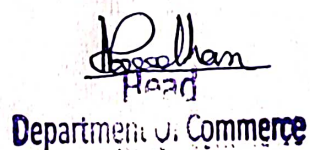 Head
Department of Commerce